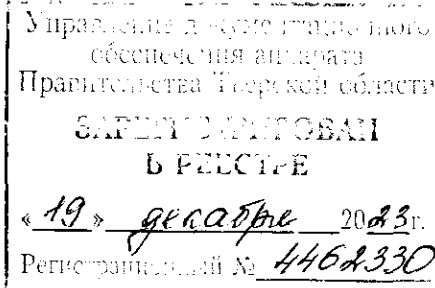 Управление документационного
обеспечения аппарата
Правительства Тверской области
ЗАРЕГИСТРИРОВАН
В РЕЕСТРЕ
«19» декабря 2023г.
Регистрационный № 4462330